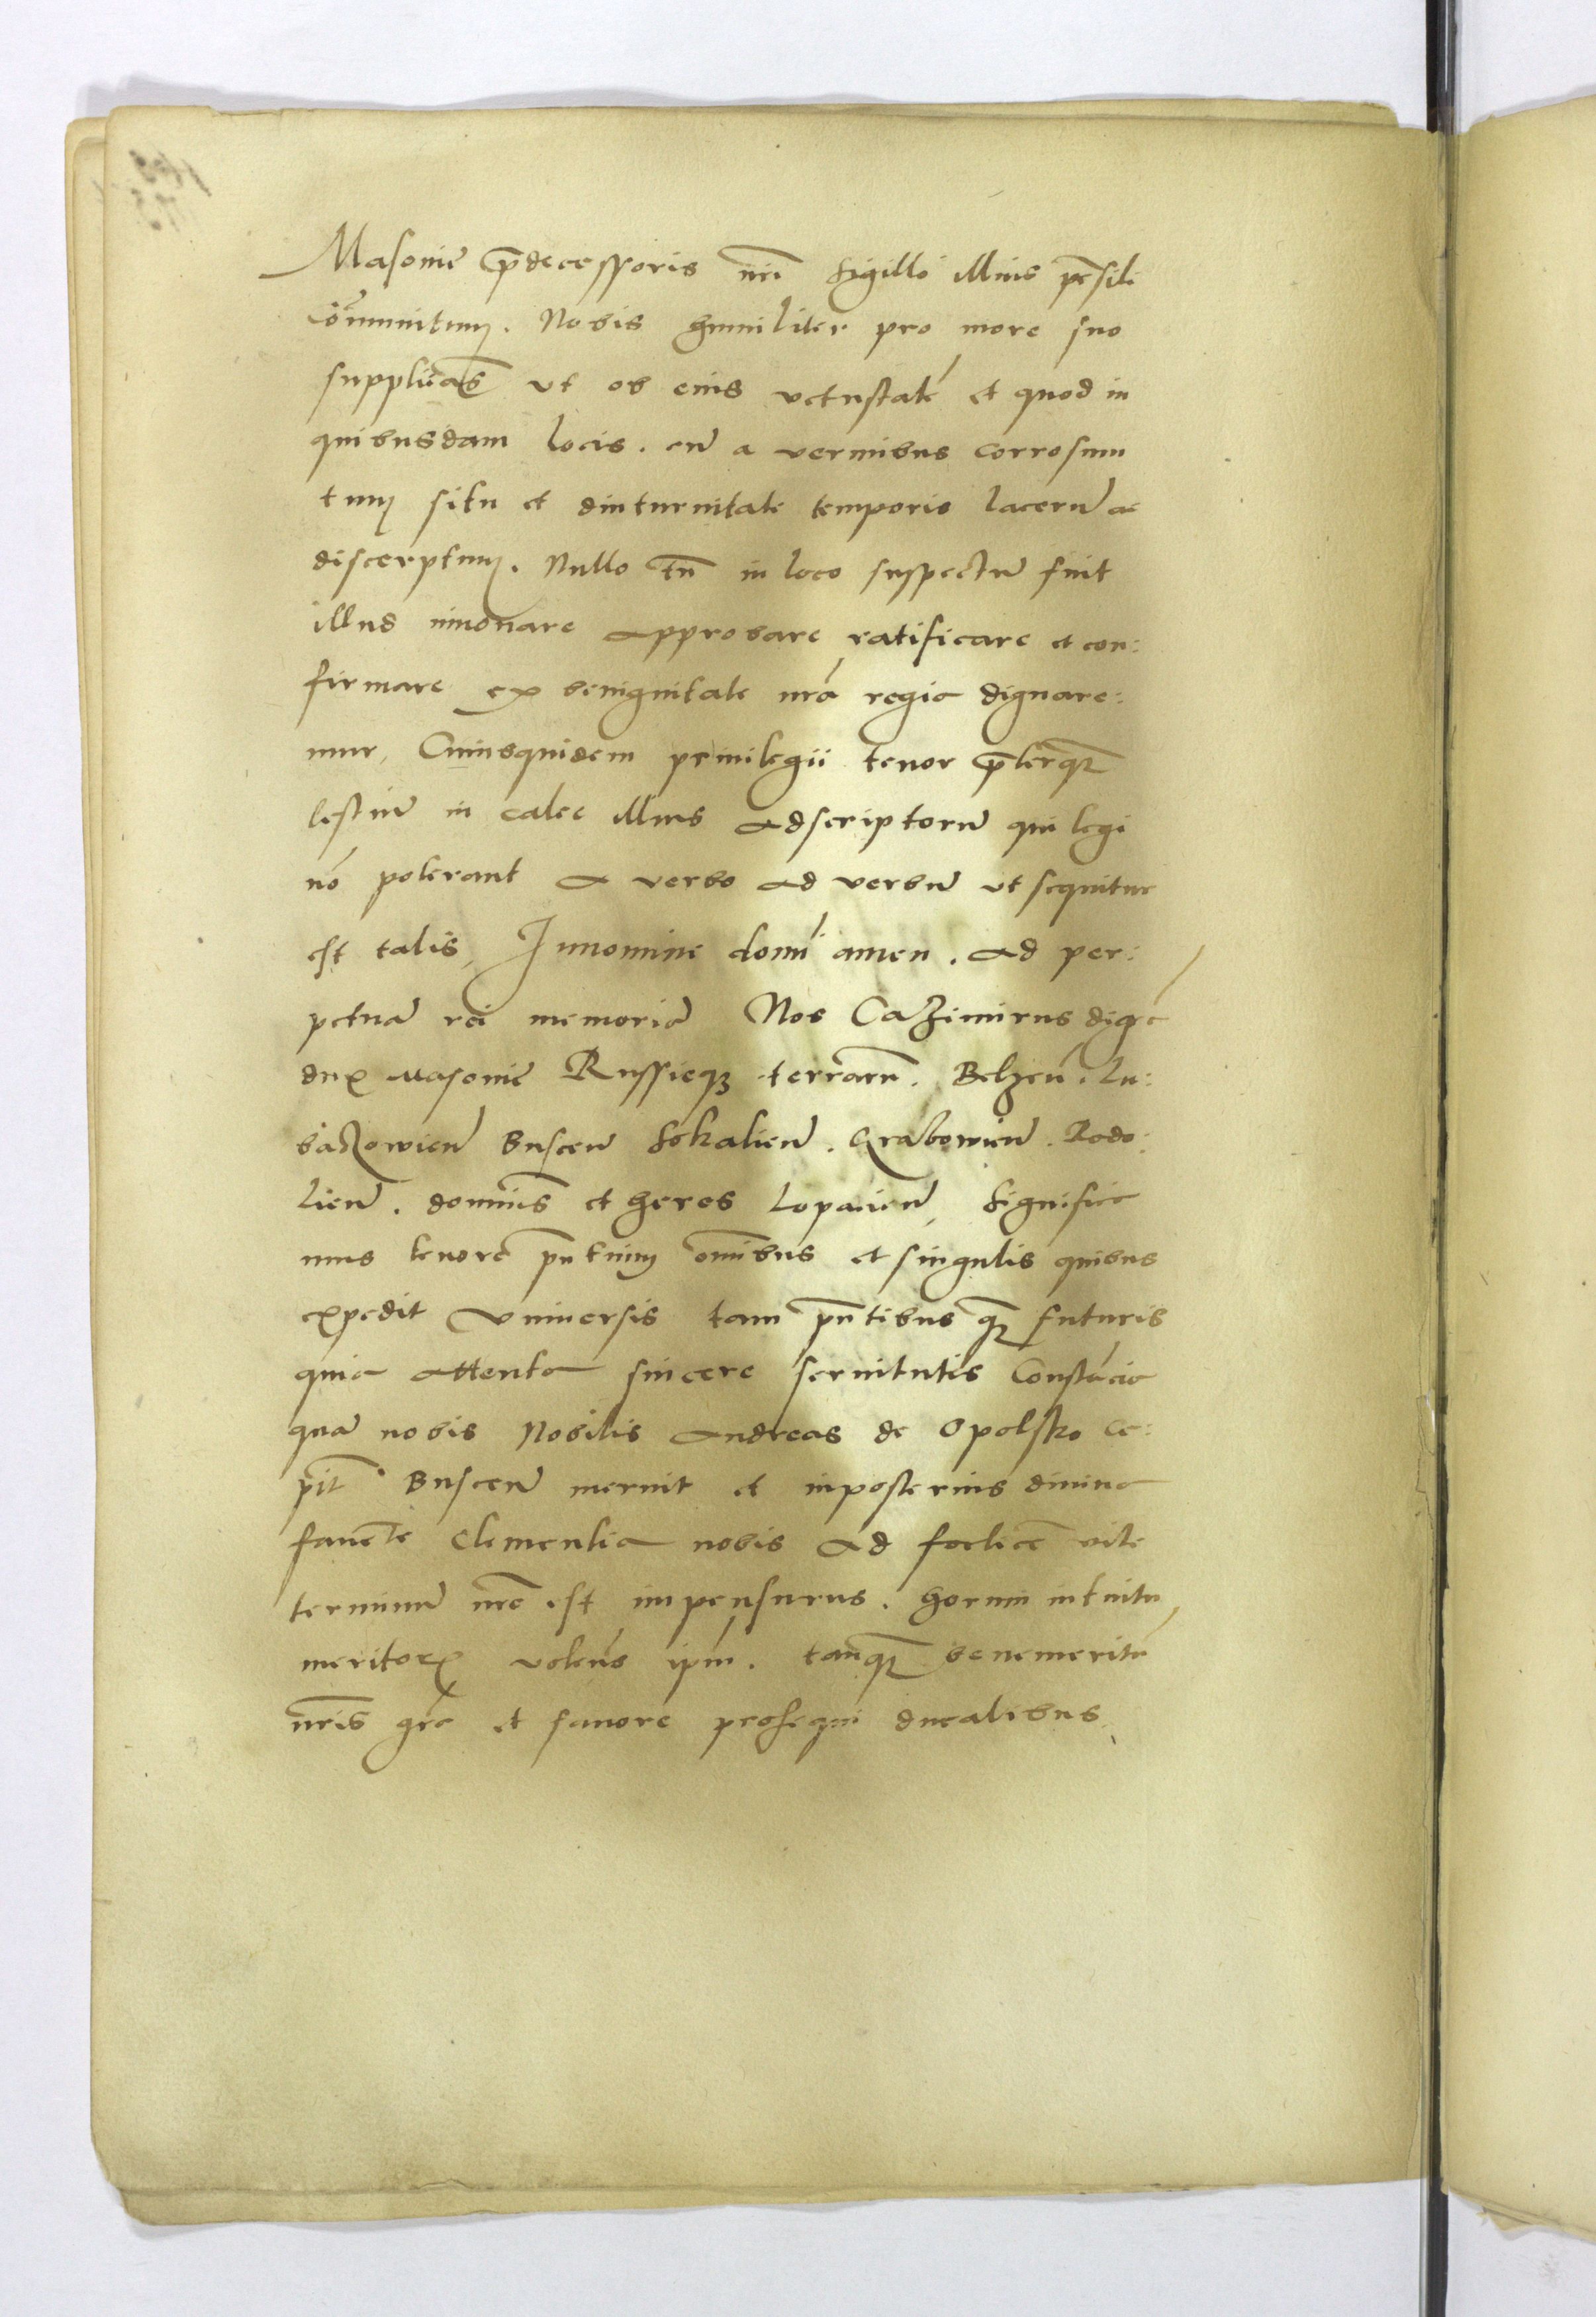 Masoniē p̄decessoris nr̄i sigillo illius pēsili
cōmunitum. Nobis humiliter pro more suo
supplicās ut ob eius vetustatē et quod in
quibusdam locis. cū a vermibus corrosum
tum situ et diuturnitate temporis lacerū ac
discerptum. Nullo tn̄ in loco suspectū fuit
illud innouare approbare ratificare et con:
firmare ex benignitate nrā regia dignare:
mur, Cuiusquidem priuilegii tenor p̄terqȝ
testiū in calce illius adscriptorū qui legi
nō poterant a verbo ad verbū ut sequitur
est talis, In nomine domī amen. ad per:
petuā rei memoriā Nos Cazimirus dei grā
dux Masoniē Russieqȝ terrarū. Belzeń. Lu:
baczowień Busceń Sokalień. Grabowień. Lodo:
lień. dominus et heres Lopatień, Significa
mus tenore pn̄tium om̄ibus et singulis quibus
expedit vniuersis tam pn̄tibus qȝ futuris
quia attenta sincere seruitutis Constācia
quā nobis Nobilis Andreas de Opolsko ca:
pit Busceń meruit et inposterius diuina
fauēte clementia nobis ad foelicē vite
terminū nrē est impensurus. horum intuitu
meritorꝫ volens ipm̄. tanqȝ benemeritū
nr̄is grā et fauore prosequi ducalibus,